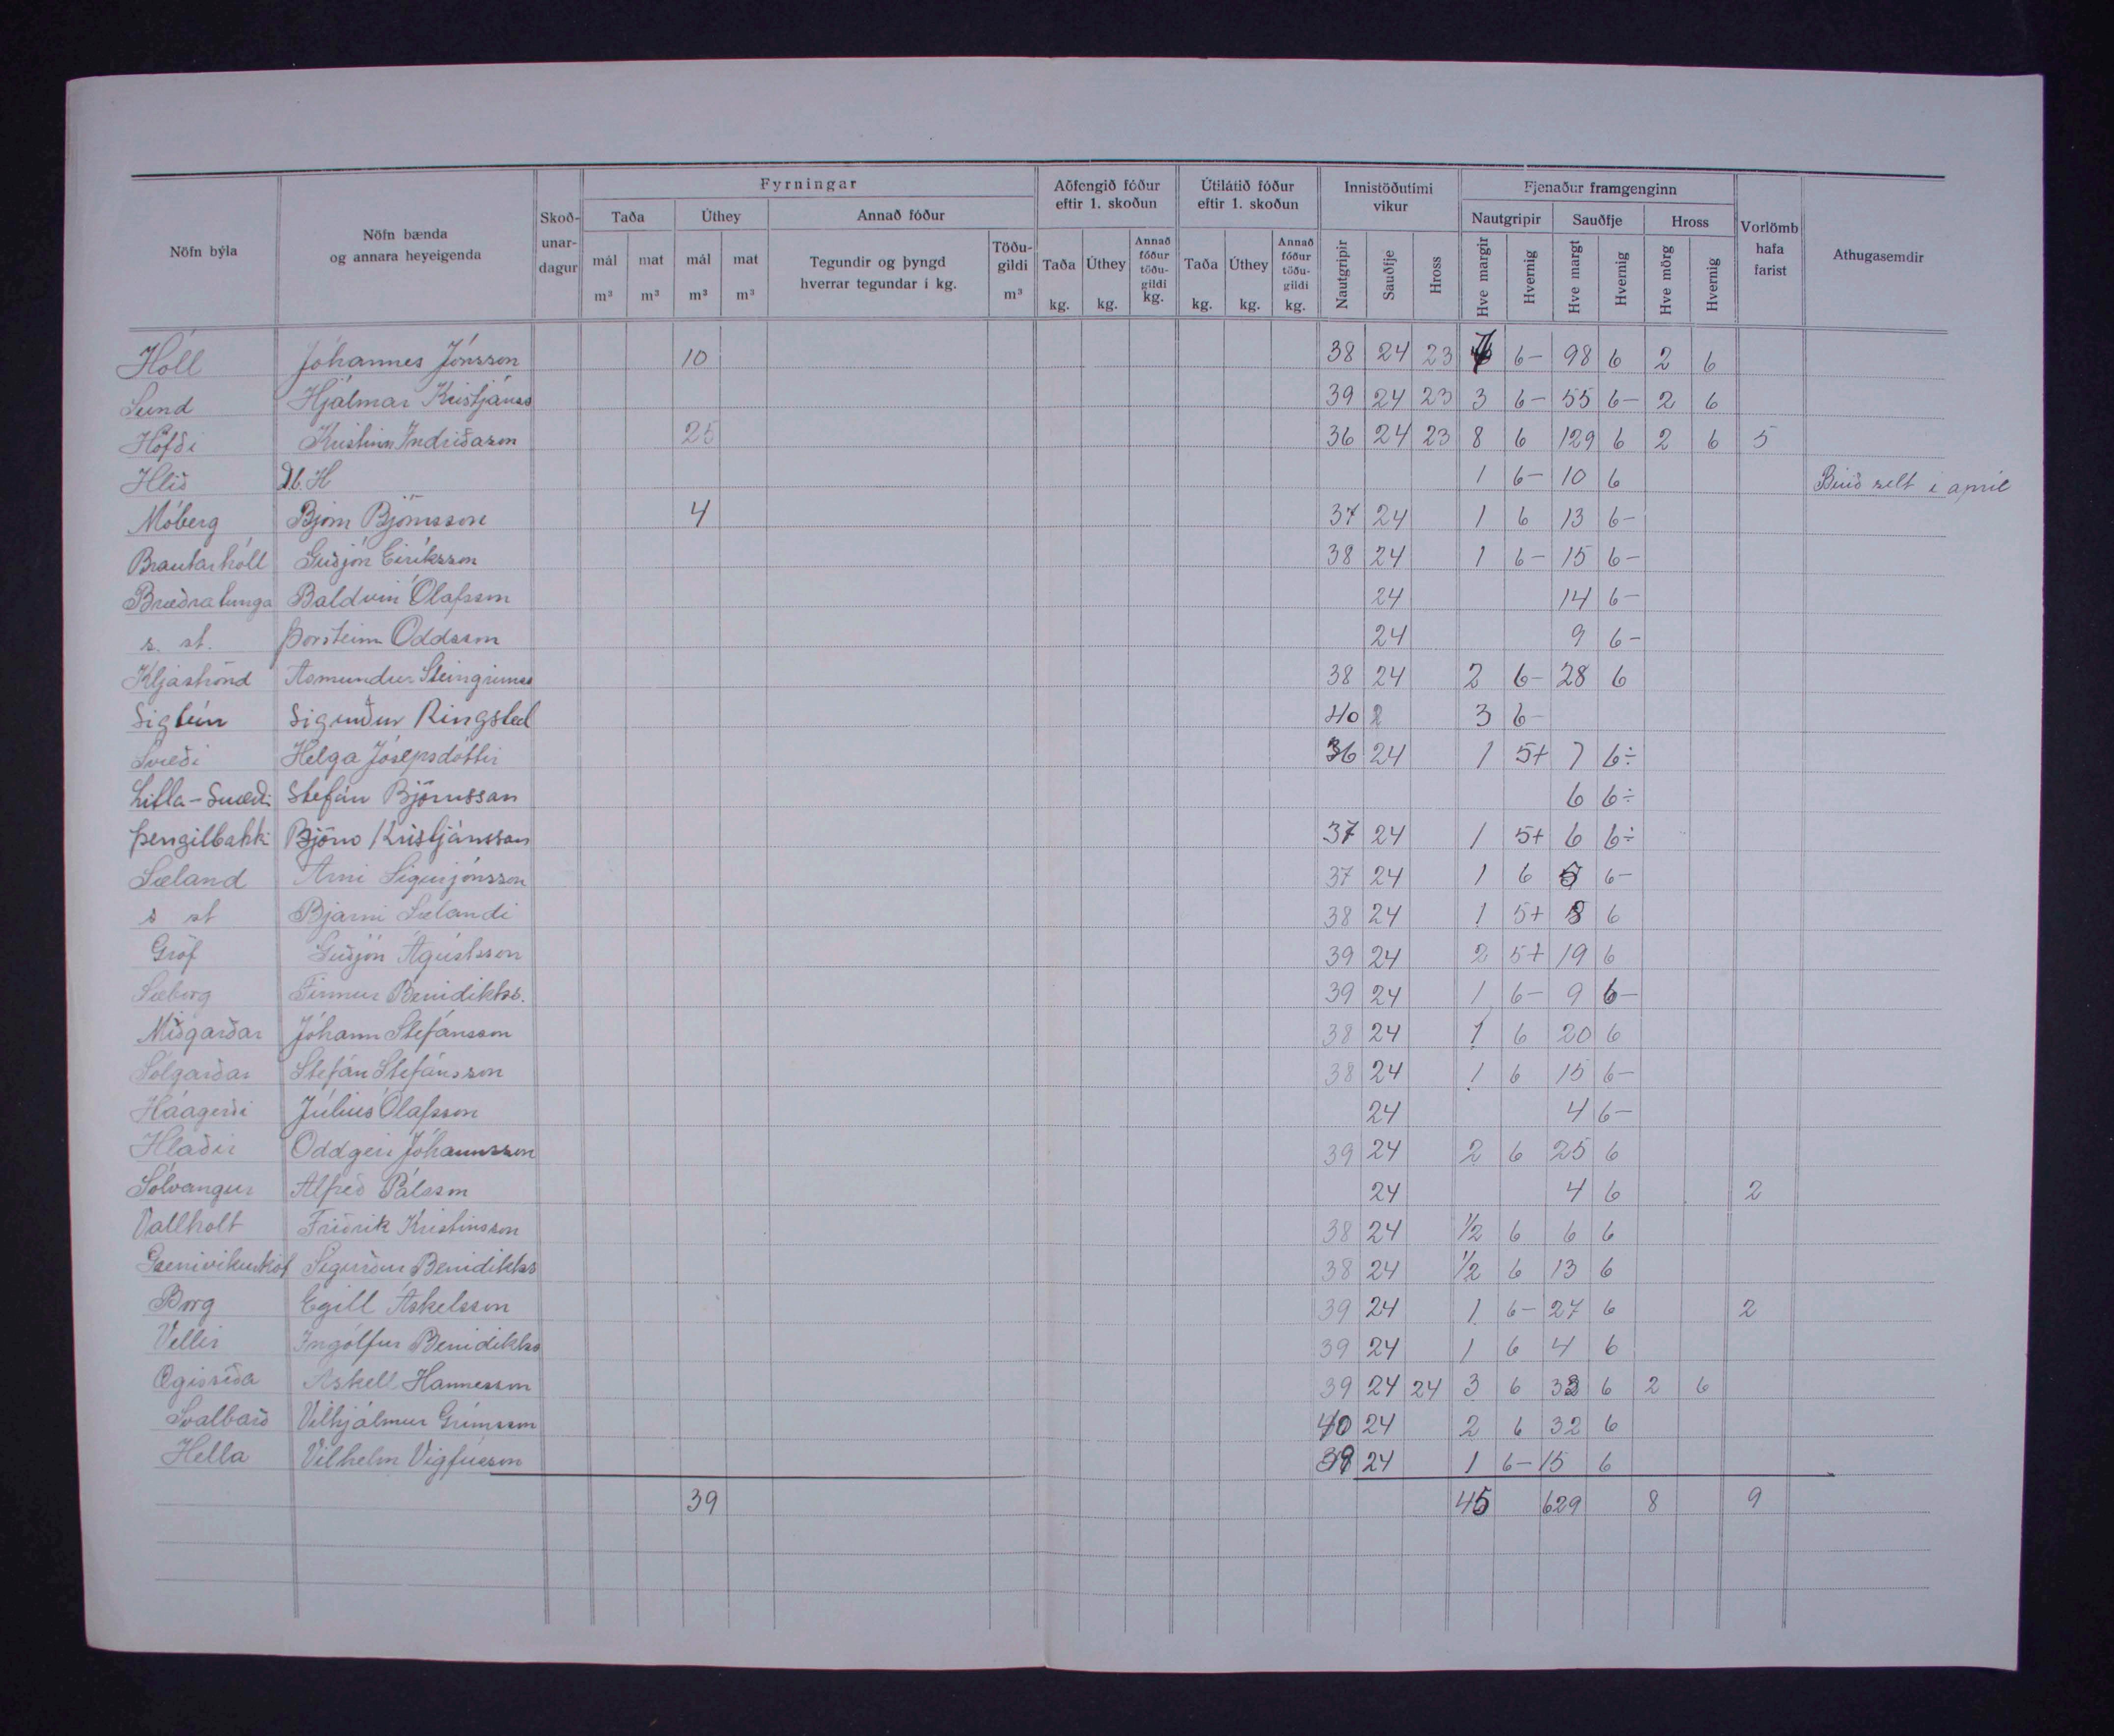 Fyrningar
Aðfengið fóður eftir 1. skoðun
Útilátið fóður eftir 1. skoðun
Innistöðutími vikur
Fjenaður framgenginn
Nöfn býla
Nöfn bænda og annara heyeigenda
Skoð-unar-dagur
Taða
Úthey
Annað fóður
Nautgripir
Sauðfje
Hross
Vorlömb hafa farist
Athugasemdir
mál m³
mat m³
mál m³
mat m³
Tegundir og þyngd hverrar tegundar í kg.
Töðu-gildi m³
Taða kg.
Úthey kg.
Annað fóður töðu-gildi kg.
Taða kg.
Úthey kg.
Annað fóður töðu-gildi kg.
Nautgripir
Sauðfje
Hross
Hve margir
Hvernig
Hve margt
Hvernig
Hve mörg
Hvernig
Hóll Jóhannes Jónsson 10 38 24 23 7 6- 98 6 2 6
Sund Hjálmar Kristjánss 39 24 23 3 6- 55 6- 2 6
Höfði Kristinn Indriðason 25 36 24 23 8 6 129 6 2 6 5
Hlíð 1 6- 10 6 Búið selt í apríl
Móberg Björn Björnsson 4 37 24 1 6 13 6-
Brautarhóll Guðjón Eiríksson 38 24 1 6- 15 6-
Bræðratunga Baldvin Ólafsson 24 14 6-
s. st. Þorsteinn Oddsson 24 9 6-
Kljáströnd Ásmundur Steingrímss 38 24 2 6- 28 6
Sigtún Sigurður Ringsted 40 2 3 6-
Svæði Helga Jósepsdóttir 36 24 1 5+ 7 6÷
Litla-Svæði Stefán Björnsson 6 6÷
Þengilbakki Björn Kristjánsson 37 24 1 5+ 6 6÷
Sæland Árni Sigurjónsson 37 24 1 6 5 6-
s st Bjarni Sælandi 38 24 1 5+ 8 6
Gröf Guðjón Ágústsson 39 24 2 5+ 19 6
Sæborg Finnur Benidiktss. 39 24 1 6- 9 6-
Miðgarðar Jóhann Stefánsson 38 24 1 6 20 6
Sólgarðar Stefán Stefánsson 38 24 1 6 15 6-
Háagerði Júlíus Ólafsson 24 4 6-
Hlaðir Oddgeir Jóhannsson 39 24 2 6 25 6
Sólvangur Alfreð Pálsson 24 4 6 2
Vallholt Friðrik Kristinsson 38 24 1/2 6 6 6
Grenivíkurkot Sigurður Benidiktss 38 24 1/2 6 13 6
Borg Egill Áskelsson 39 24 1 6- 27 6 2
Vellir Ingólfur Benidiktss 39 24 1 6 4 6
Ægissíða Áskell Hannesson 39 24 24 3 6 33 6 2 6
Svalbarð Vilhjálmur Grímsson 40 24 2 6 32 6
Hella Vilhelm Vigfússon 39 24 1 6- 15 6
39 45 629 8 9